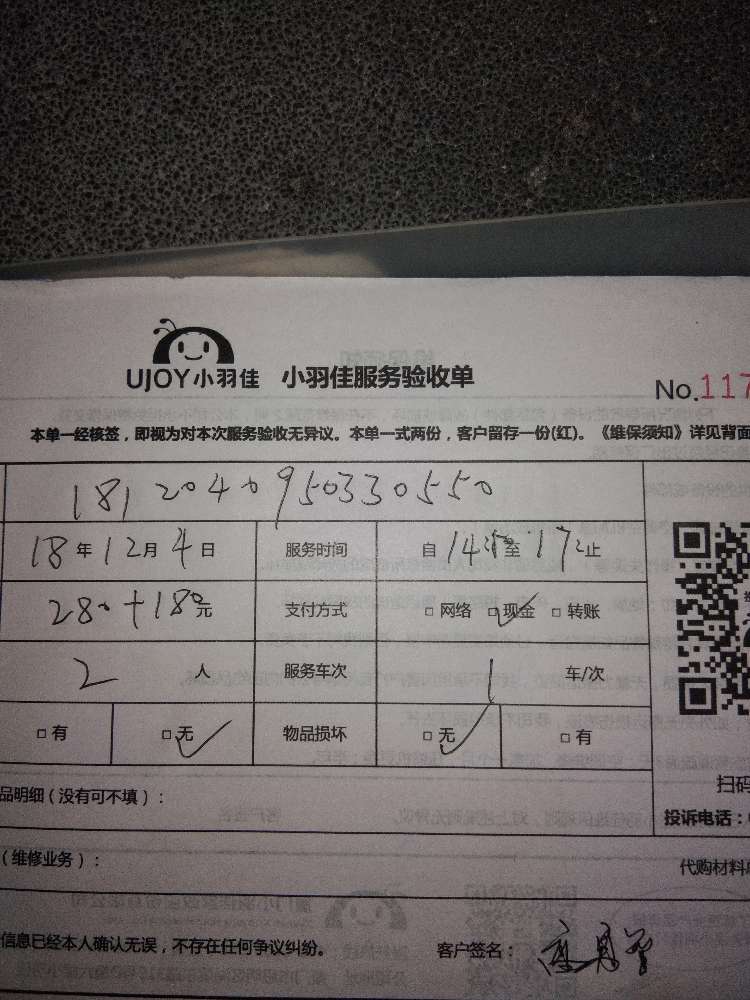 UJOY小羽佳 小羽佳服务验收单
No.117
本单一经核签，即视为对本次服务验收无异议。本单一式两份，客户留存一份(红)。《维保须知》详见背面
1812040950330550
18年12月4日 服务时间 自14 至17 止
280+180元 支付方式 □网络 □现金 □转账
2人 服务车次 1车/次
□有 □无 物品损坏 □无 □有
扫码
品明细（没有可不填）：
投诉电话：
（维修业务）：
代购材料
信息已经本人确认无误，不存在任何争议纠纷。 客户签名：